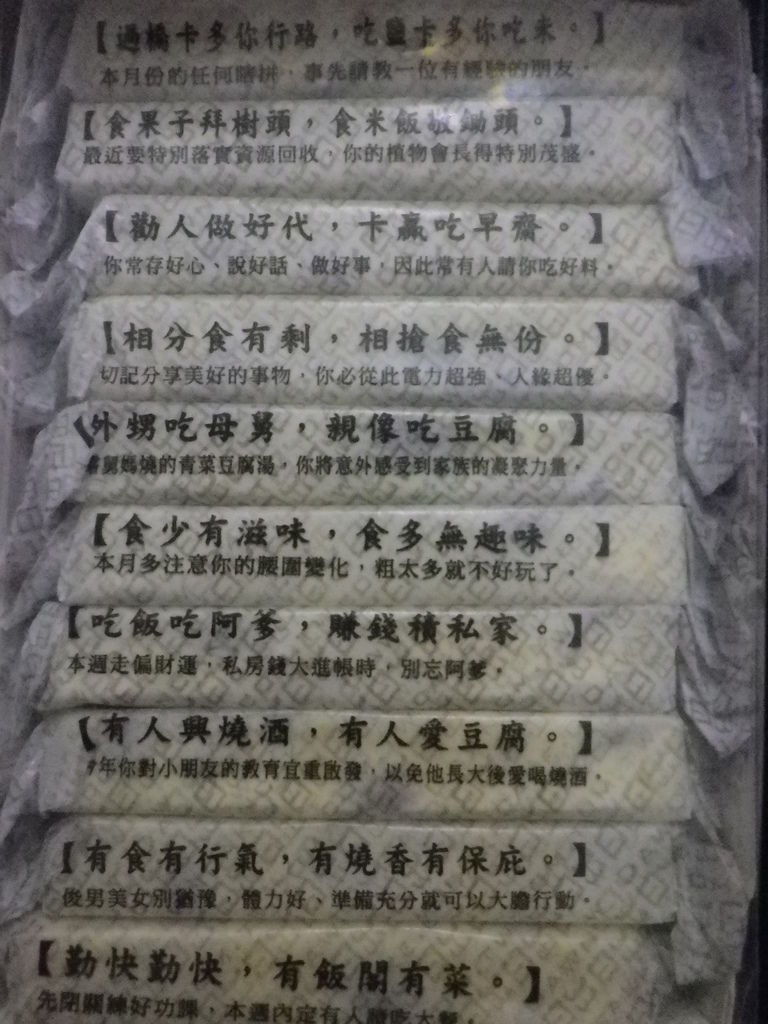 【過橋卡多你行路,吃鹽卡多你吃米。】
本月份的任何瞎拼,事先請教一位有經驗的朋友。
【食果子拜樹頭,食米飯敬鋤頭。】
最近要特別落實資源回收,你的植物會長得特別茂盛。
【勸人做好代,卡贏吃早齋。】
你常存好心、說好話、做好事,因此常有人請你吃好料。
【相分食有剩,相搶食無份。】
切記分享美好的事物,你必從此電力超強、人緣超優。
【外甥吃母舅,親像吃豆腐。】
舅媽燒的青菜豆腐湯,你將意外感受到家族的凝聚力量。
【食少有滋味,食多無趣味。】
本月多注意你的腰圍變化,粗太多就不好玩了。
【吃飯吃阿爹,賺錢積私家。】
本週走偏財運,私房錢大進帳時,別忘阿爹。
【有人興燒酒,有人愛豆腐。】
今年你對小朋友的教育宜重啟發,以免他長大後愛喝燒酒。
【有食有行氣,有燒香有保庇。】
俊男美女別猶豫,體力好、準備充分就可以大膽行動。
【勤快勤快,有飯閣有菜。】
先閉關練好功課,本週內定有人請吃大餐。